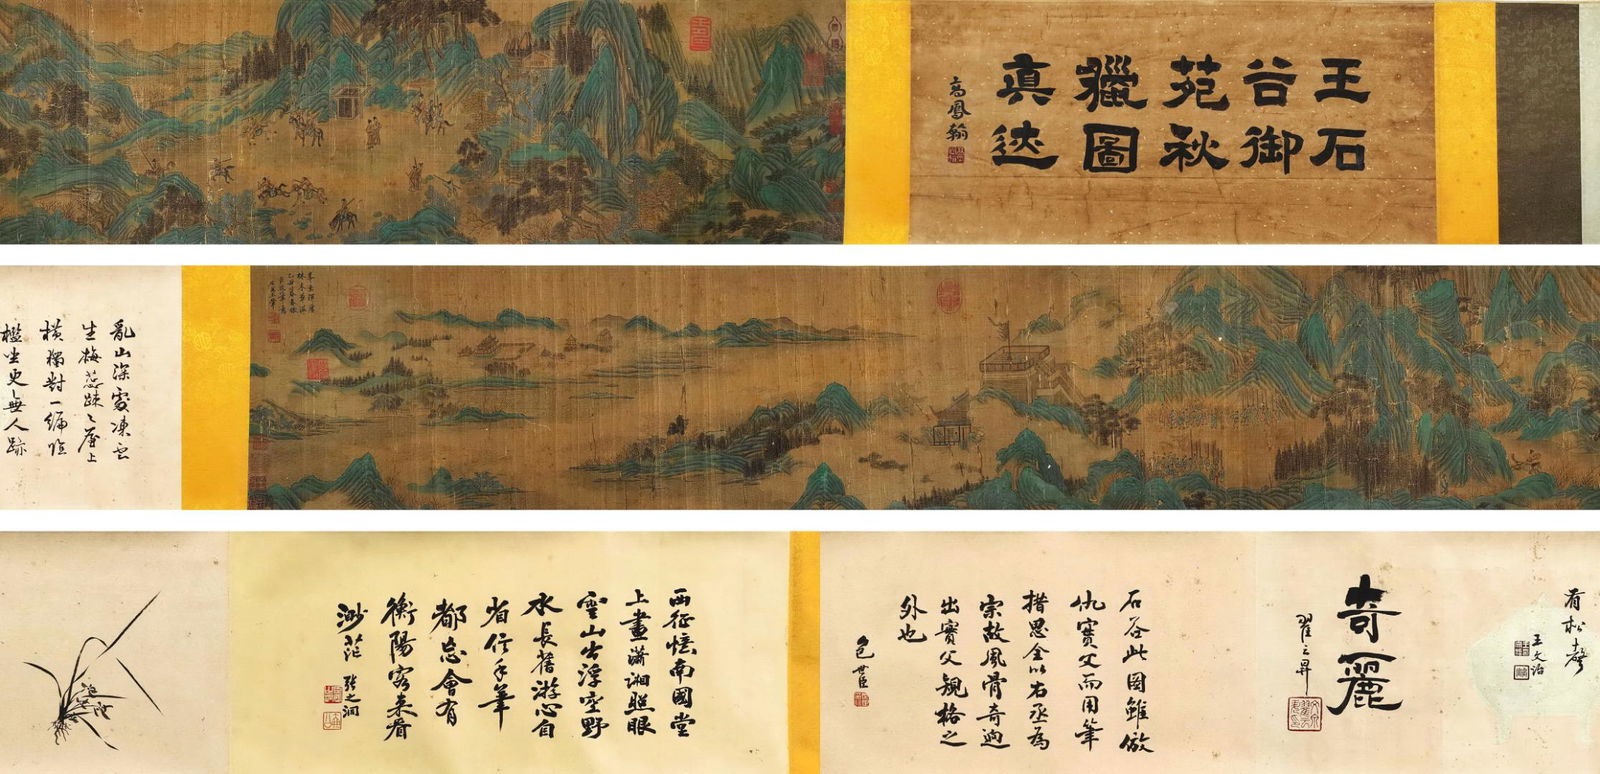 王石
谷御
苑秋
獵圖
真迹
高鳳翰
亂山深處凍雲
生梅蕊疎〻屋上
橫獨對一編臨
檻坐更無人跡
有松聲
王文治
奇麗
翟云昇
石谷此图雖倣
仇實父而用筆
措思全以右丞為
宗故風骨奇逈
出實父規格之
外也
包世臣
西征憶南國堂
上畫瀟湘照眼
雲山出浮空野
水長舊游心自
省信手筆
都忘會有
衡陽客来看
渺茫 張之洞